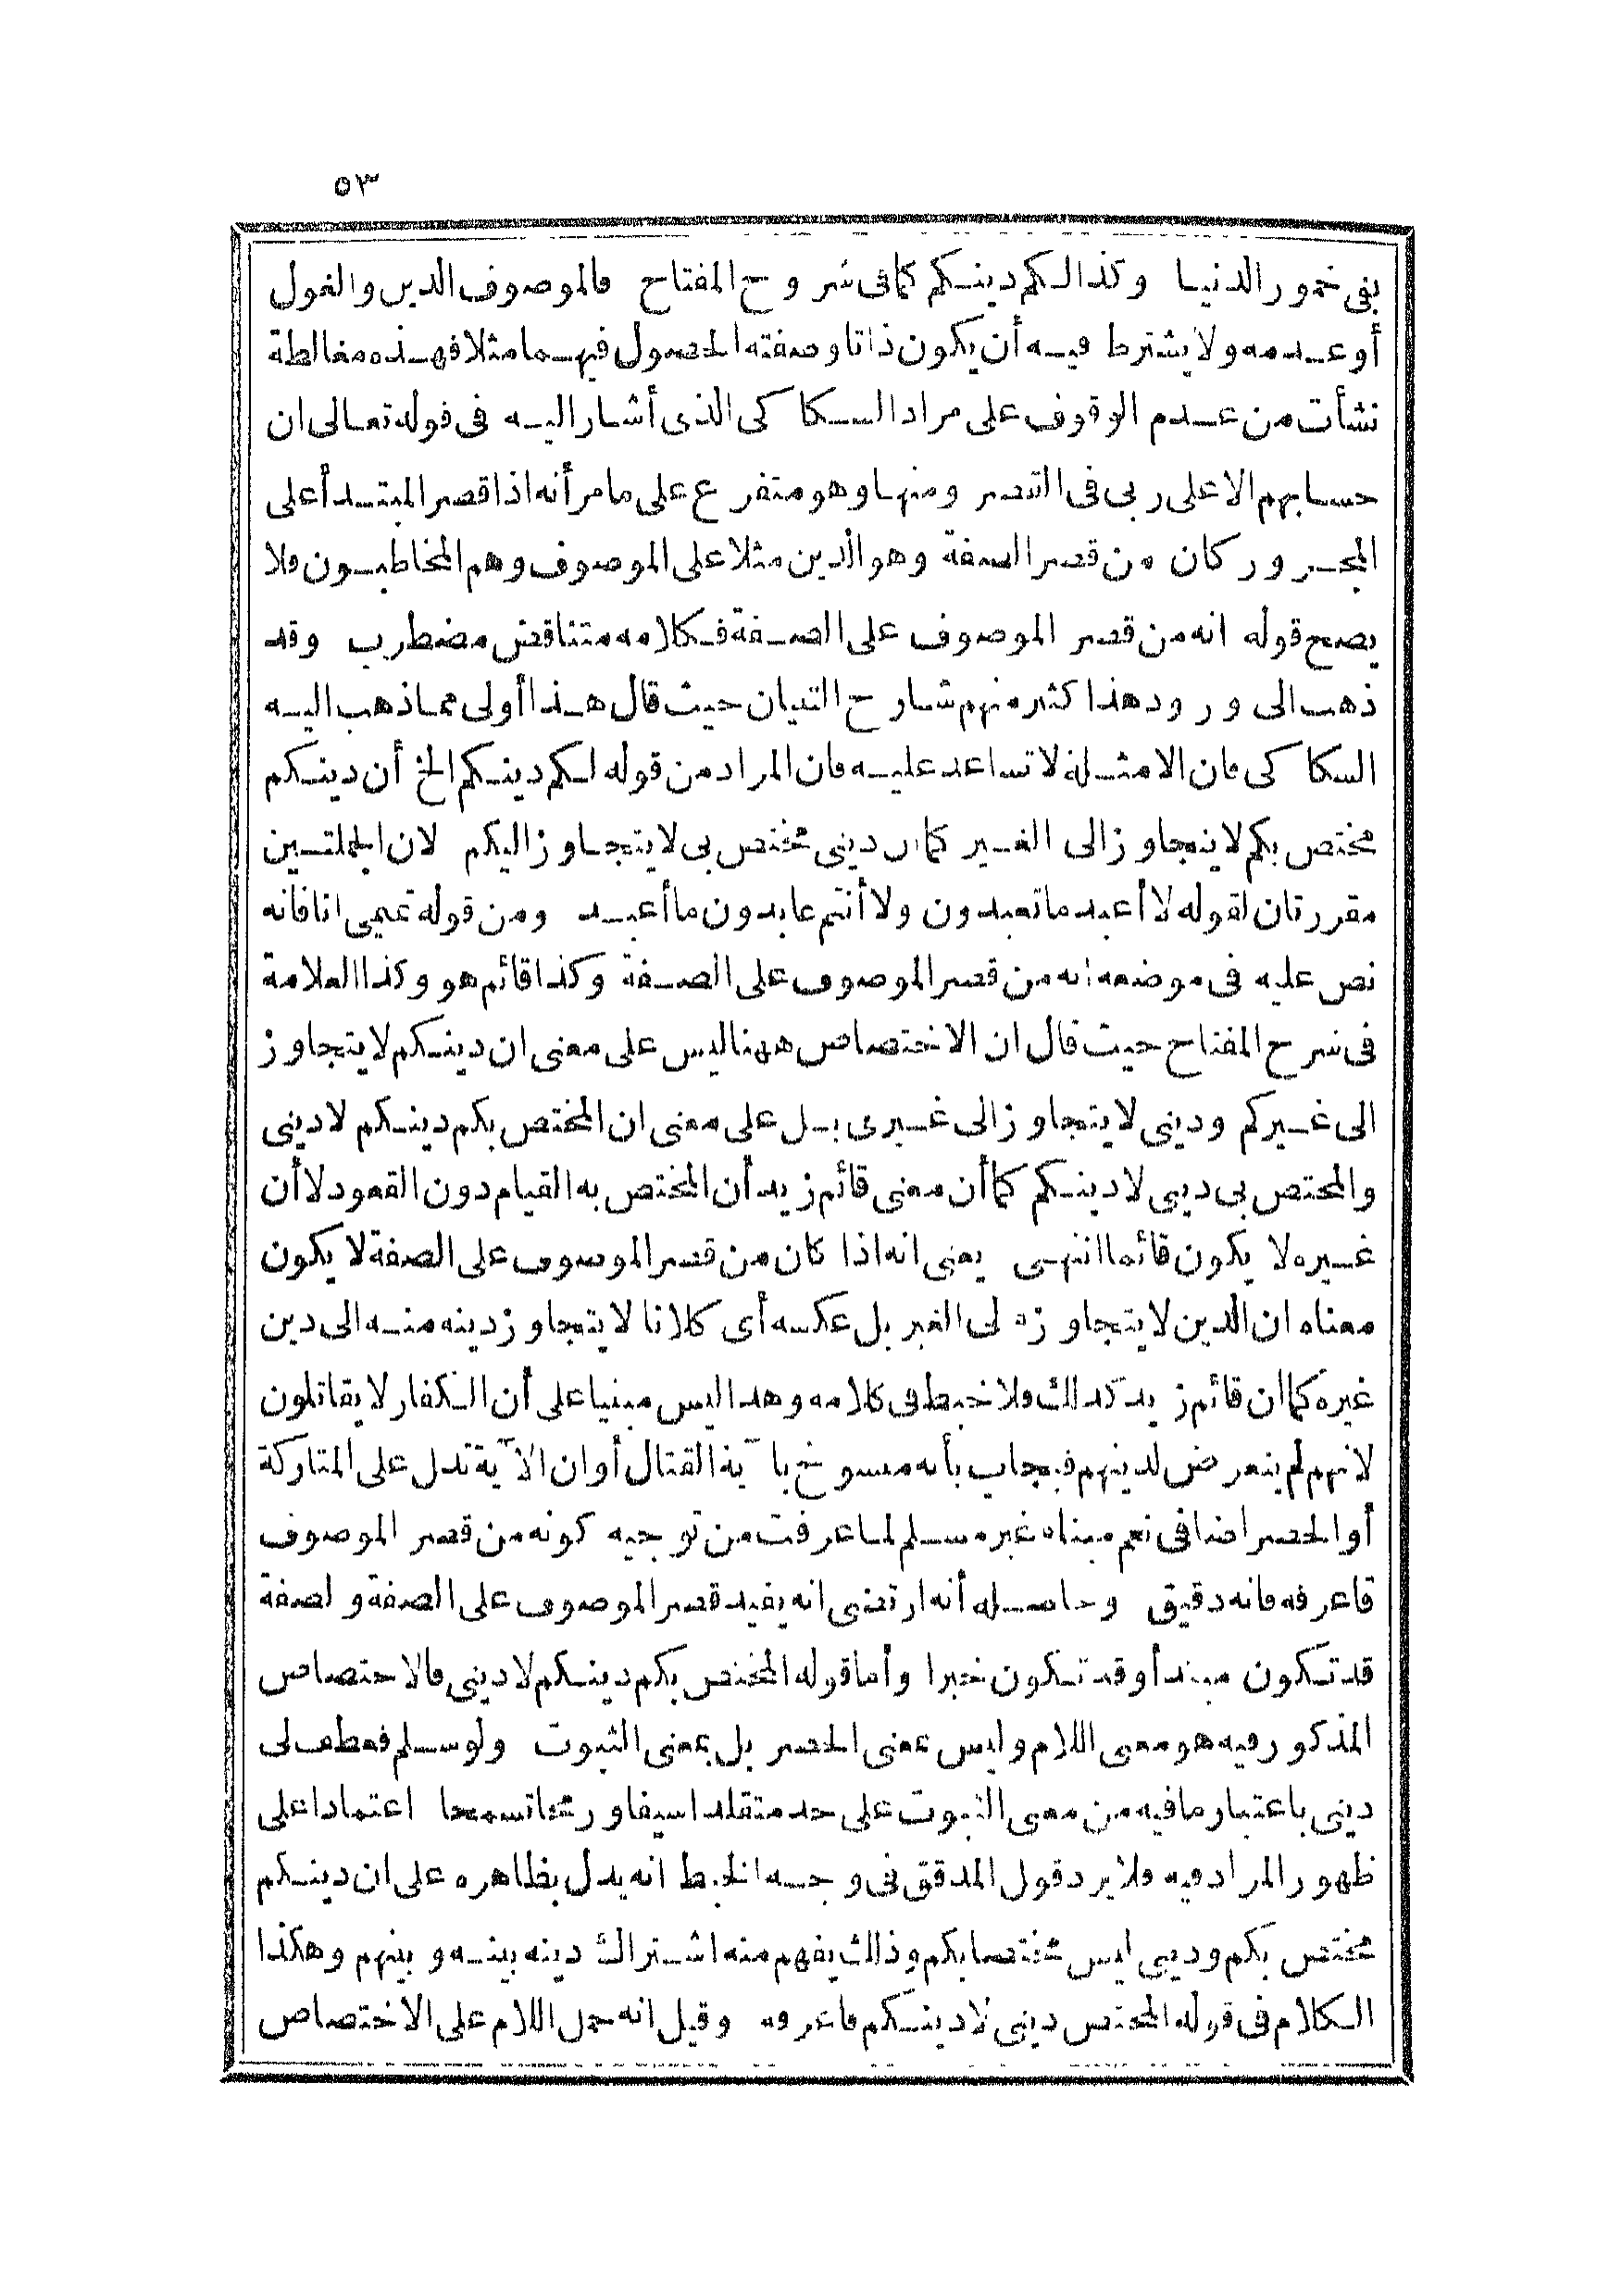 ٥٣
بفى خمور الدنيا وكذا لكم دينكم كما فى شروح المفتاح فالموصوف الدين والغول
أو عدمه ولا يشترط فيه أن يكون ذاتا وصفته الحصول فيهما مثلا فهذه مغالطة
نشأت من عدم الوقوف على مراد السكاكى الذى أشار اليه فى قوله تعالى ان
حسابهم الا على ربى فى القصر ومنها وهو متفرع على ما مر أنه اذا قصر المبتدأ على
المجرور كان من قصر الصفة وهو الدين مثلا على الموصوف وهم المخاطبون فلا
يصح قوله انه من قصر الموصوف على الصفة فكلامه متناقض مضطرب وقد
ذهب الى ورود هذا كثير منهم شارح التبيان حيث قال هذا أولى مما ذهب اليه
السكاكى فان الامثلة لا تساعد عليه فان المراد من قوله لكم دينكم الخ أن دينكم
مختص بكم لا يتجاوز الى الغير كما ان دينى مختص بى لا يتجاوز اليكم لان الجملتين
مقررتان لقوله لا أعبد ما تعبدون ولا أنتم عابدون ما أعبد ومن قوله تميمى انا فانه
نص عليه فى موضعه انه من قصر الموصوف على الصفة وكذا قائم هو وكذا العلامة
فى شرح المفتاح حيث قال ان الاختصاص ههنا ليس على معنى ان دينكم لا يتجاوز
الى غيركم ودينى لا يتجاوز الى غيرى بل على معنى ان المختص بكم دينكم لا دينى
والمختص بى دينى لا دينكم كما أن معنى قائم زيد أن المختص به القيام دون القعود لا أن
غيره لا يكون قائما انتهى يعنى انه اذا كان من قصر الموصوف على الصفة لا يكون
معناه ان الدين لا يتجاوزه لى الغير بل عكسه أى كلانا لا يتجاوز دينه منه الى دين
غيره كما ان قائم زيد كذلك فلا خبط فى كلامه وهذا ليس مبنيا على أن الكفار لا يقاتلون
لانهم لم يتعرض لدينهم فيجاب بأنه منسوخ بآية القتال أو ان الآية تدل على المتاركة
أو الحصر اضافى نعم مبناه غير مسلم لما عرفت من توجيه كونه من قصر الموصوف
فاعرفه فانه دقيق وحاصله أنه ارتضى انه يفيد قصر الموصوف على الصفة ولصفة
قد تكون مبتدأ وقد تكون خبرا وأما قوله المختص بكم دينكم لا دينى فالاختصاص
المذكور فيه هو معنى اللام وليس بمعنى الحصر بل بمعنى الثبوت ولو سلم فعطف لى
دينى باعتبار ما فيه من معنى الثبوت على حد متقلدا سيفا ورمحا تسمحا اعتمادا على
ظهور المراد فيه فلا يرد قول المدقق فى وجه الخبط انه يدل بظاهره على ان دينكم
مختص بكم ودينى ليس مختصا بكم وذلك يفهم منه اشتراك دينه بينه وبينهم وهكذا
الكلام فى قوله المختص دينى لا دينكم فاعرفه وقيل انه حمل اللام على الاختصاص